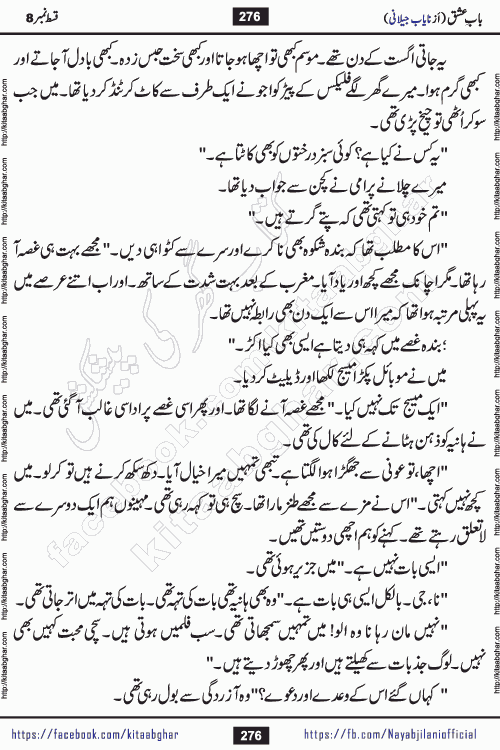 باب عشق (از نایاب جیلانی) 276 قسط نمبر 8
یہ جاتی اگست کے دن تھے۔ موسم کبھی تو اچھا ہو جاتا اور کبھی سخت حبس زدہ۔ کبھی بادل آ جاتے اور
کبھی گرم ہوا۔ میرے گھر لگے فلیکس کے پیڑ کو اجو نے ایک طرف سے کاٹ کر ٹنڈ کر دیا تھا۔ میں جب
سو کر اُٹھی تو چیخ پڑی تھی۔
"یہ کس نے کیا ہے؟ کوئی سبز درختوں کو بھی کاٹتا ہے۔"
میرے چلانے پر امی نے کچن سے جواب دیا تھا۔
"تم خود ہی تو کہتی تھی کہ پتے گرتے ہیں۔"
"اس کا مطلب تھا کہ بندہ شکوہ بھی نا کرے اور سرے سے کٹوا ہی دیں۔" مجھے بہت ہی غصہ آ
رہا تھا۔ مگر اچانک مجھے کچھ اور یاد آیا۔ مغرب کے بعد بہت شدت کے ساتھ۔ اور اب اتنے عرصے میں
یہ پہلی مرتبہ ہوا تھا کہ میرا اس سے ایک دن بھی رابطہ نہیں تھا۔
؛ بندہ غصے میں کہہ ہی دیتا ہے ایسی بھی کیا اکڑ۔"
میں نے موبائل پکڑا میسج لکھا اور ڈیلیٹ کر دیا۔
"ایک میسج تک نہیں کیا۔" مجھے غصہ آنے لگا تھا۔ اور پھر اسی غصے پر اداسی غالب آ گئی تھی۔ میں
نے ہانیہ کو ذہن ہٹانے کے لئے کال کی تھی۔
"اچھا، تو عونی سے جھگڑا ہوا لگتا ہے۔ تبھی تمہیں میرا خیال آیا۔ دکھ سکھ کرنے ہیں تو کر لو۔ میں
کچھ نہیں کہتی۔" اس نے مزے سے مجھے طنز مارا تھا۔ سچ ہی تو کہہ رہی تھی۔ مہینوں ہم ایک دوسرے سے
لا تعلق رہتے تھے۔ کہنے کو ہم اچھی دوستیں تھیں۔
"ایسی بات نہیں ہے۔" میں جزبز ہوئی تھی۔
"نا، جی۔ بالکل ایسی ہی بات ہے۔" وہ بھی ہانیہ تھی بات کی تہہ تھی۔ بات کی تہہ میں اتر جاتی تھی۔
"نہیں مان رہا نا وہ الو! میں تمہیں سمجھاتی تھی۔ سب فلمیں ہوتی ہیں۔ سچی محبت کہیں بھی
نہیں۔ لوگ جذبات سے کھیلتے ہیں اور پھر چھوڑ دیتے ہیں۔"
"کہاں گئے اس کے وعدے اور دعوے؟" وہ آزردگی سے بول رہی تھی۔
https://facebook.com/kitaabghar 276 https://fb.com/Nayabjilaniofficial
http://kitaabghar.com
کتاب گھر کی پیشکش
kitaabghar.com
facebook.com/kitaabghar